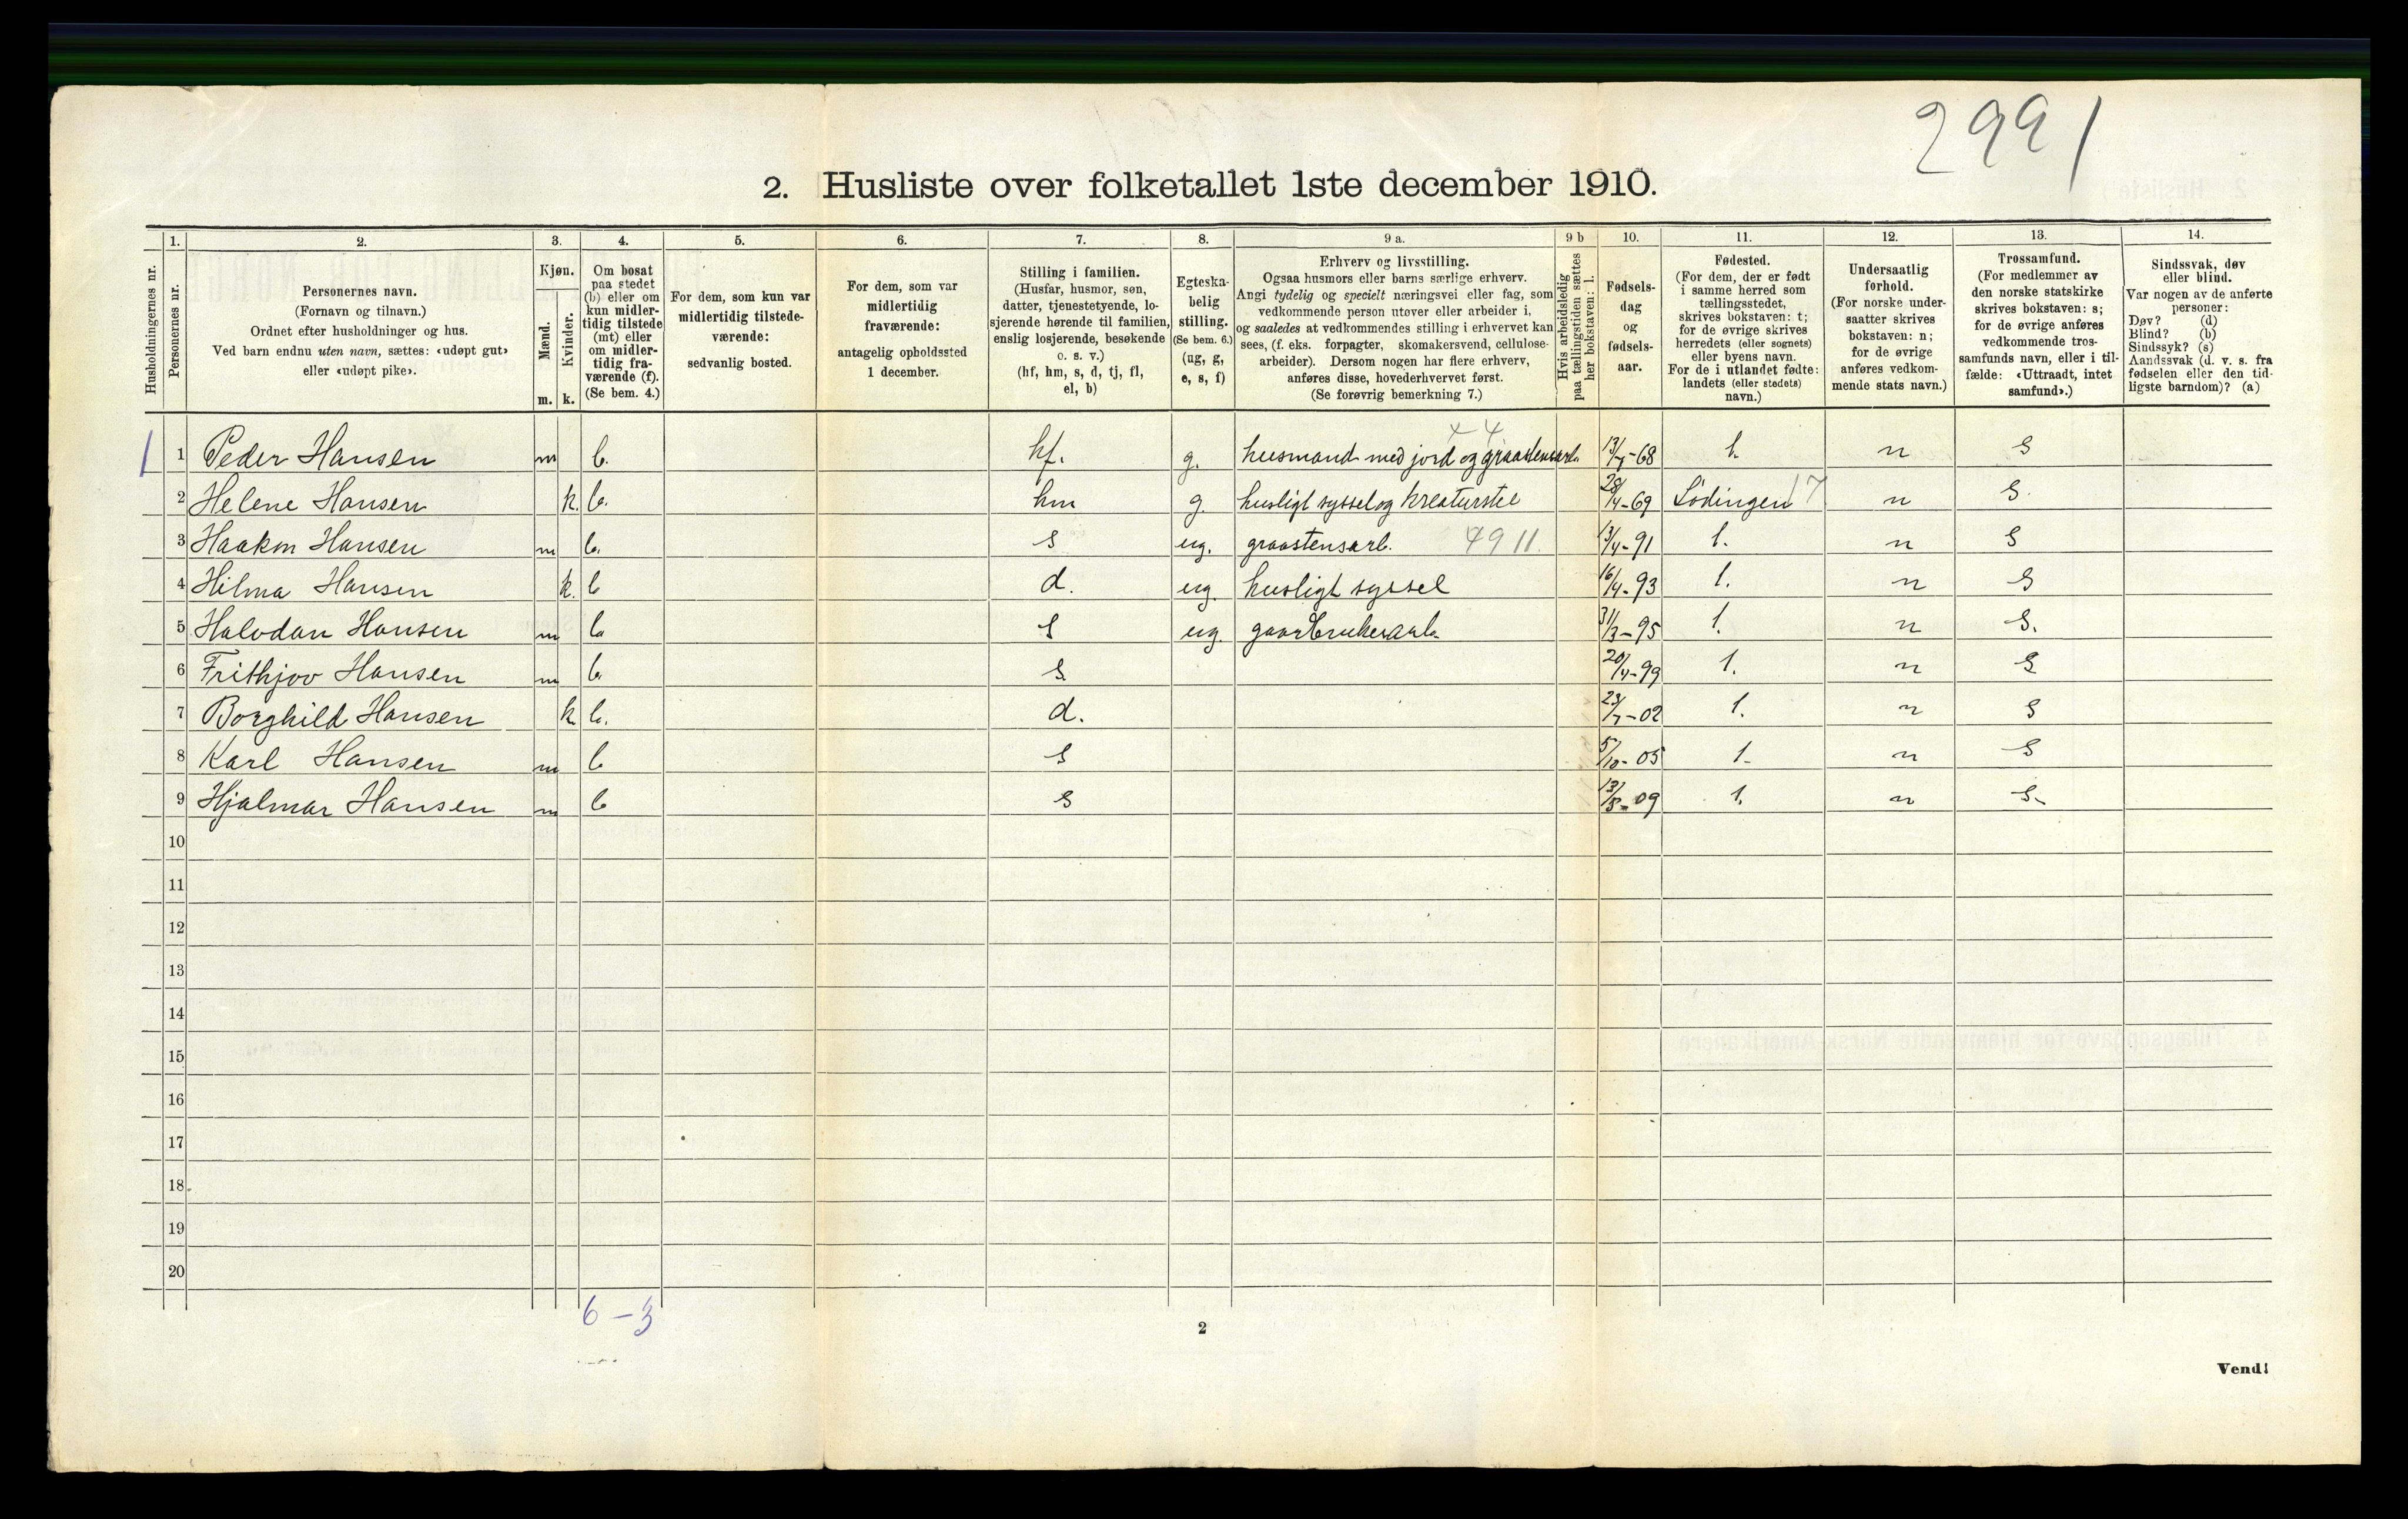 2991
2. Husliste over folketallet 1ste december 1910.
Husholdningernes nr.
1. Personernes nr.
2. Personernes navn.
(Fornavn og tilnavn.)
Ordnet efter husholdninger og hus.
Ved barn endnu uten navn, sættes: «udøpt gut»
eller «udøpt pike».
3. Kjøn.
Mænd. m.
Kvinder. k.
4. Om bosat
paa stedet
(b) eller om
kun midler-
tidig tilstede
(mt) eller
om midler-
tidig fra-
værende (f).
(Se bem. 4.)
5. For dem, som kun var
midlertidig tilstede-
værende:
sedvanlig bosted.
6. For dem, som var
midlertidig
fraværende:
antagelig opholdssted
1 december.
7. Stilling i familien.
(Husfar, husmor, søn,
datter, tjenestetyende, lo-
sjerende hørende til familien,
enslig losjerende, besøkende
o. s. v.)
(hf, hm, s, d, tj, fl,
el, b)
8. Egteska-
belig
stilling.
(Se bem. 6.)
(ug, g,
e, s, f)
9 a. Erhverv og livsstilling.
Ogsaa husmors eller barns særlige erhverv.
Angi tydelig og specielt næringsvei eller fag, som
vedkommende person utøver eller arbeider i,
og saaledes at vedkommendes stilling i erhvervet kan
sees, (f. eks. forpagter, skomakersvend, cellulose-
arbeider). Dersom nogen har flere erhverv,
anføres disse, hovederhvervet først.
(Se forøvrig bemerkning 7.)
9 b Hvis arbeidsledig
paa tællingstiden sættes
her bokstaven: l.
10. Fødsels-
dag
og
fødsels-
aar.
11. Fødested.
(For dem, der er født
i samme herred som
tællingsstedet,
skrives bokstaven: t;
for de øvrige skrives
herredets (eller sognets)
eller byens navn.
For de i utlandet fødte:
landets (eller stedets)
navn.)
12. Undersaatlig
forhold.
(For norske under-
saatter skrives
bokstaven: n;
for de øvrige
anføres vedkom-
mende stats navn.)
13. Trossamfund.
(For medlemmer av
den norske statskirke
skrives bokstaven: s;
for de øvrige anføres
vedkommende tros-
samfunds navn, eller i til-
fælde: «Uttraadt, intet
samfund».)
14. Sindssvak, døv
eller blind.
Var nogen av de anførte
personer:
Døv? (d)
Blind? (b)
Sindssyk? (s)
Aandssvak (d. v. s. fra
fødselen eller den tid-
ligste barndom)? (a)
1 1 Peder Hansen m b. hf. g. husmand med jord og graastensarb. 13/7-68 t. n s
2 Helene Hansen k. b. hm g. husligt syssel og kreaturstel 28/4-69 Lødingen 17 n s
3 Haakon Hansen m b. s ug. graastensarb. 4911. 13/4-91 t. n s
4 Hilma Hansen k. b d. ug. husligt syssel 16/4-93 t. n s
5 Halvdan Hansen m b s ug. gaardbrukerarb. 31/3-95 t. n s.
6 Frithjov Hansen m b. s. 20/4-99 t. n s
7 Borghild Hansen k b. d. 23/7-02 t. n s
8 Karl Hansen m b s 5/10-05 t n s
9 Hjalmar Hansen m b s 13/8-09 t. n s
10
11
12
13
14
15
16
17
18
19
20
6 - 3
2
Vend!